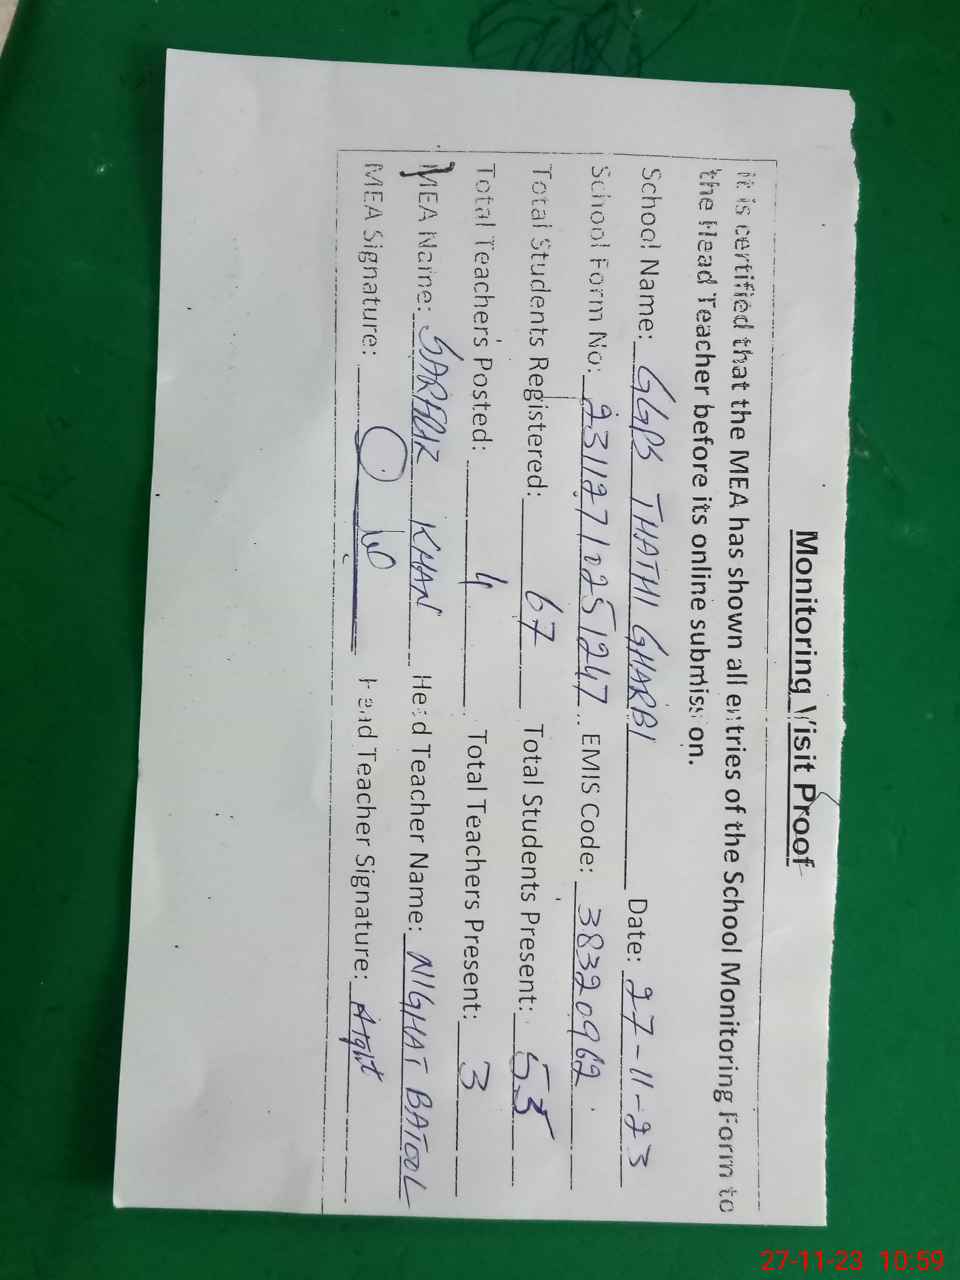 Monitoring Visit Proof
It is certified that the MEA has shown all entries of the School Monitoring Form to
the Head Teacher before its online submission.
School Name: GGPS THATHI GHARBI Date: 27-11-23
School Form No: 23112710251247 EMIS Code: 38320962
Total Students Registered: 67 Total Students Present: 55
Total Teachers Posted: 4 Total Teachers Present: 3
MEA Name: KHAN Head Teacher Name: NIGHAT BATOOL
MEA Signature: Head Teacher Signature:
27-11-23 10:59